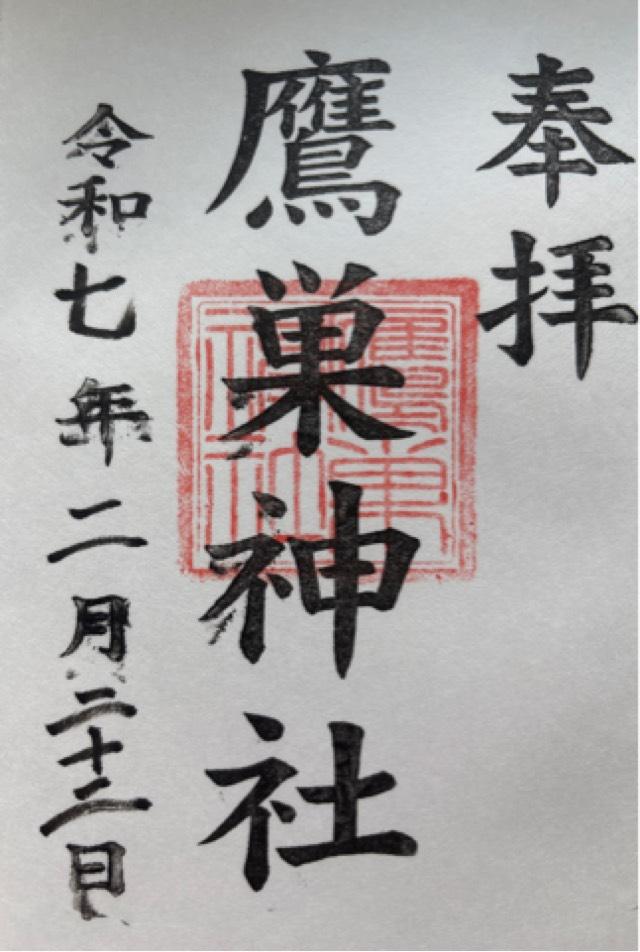 奉拝
鷹巣神社
鷹巣神社
令和七年二月二十二日